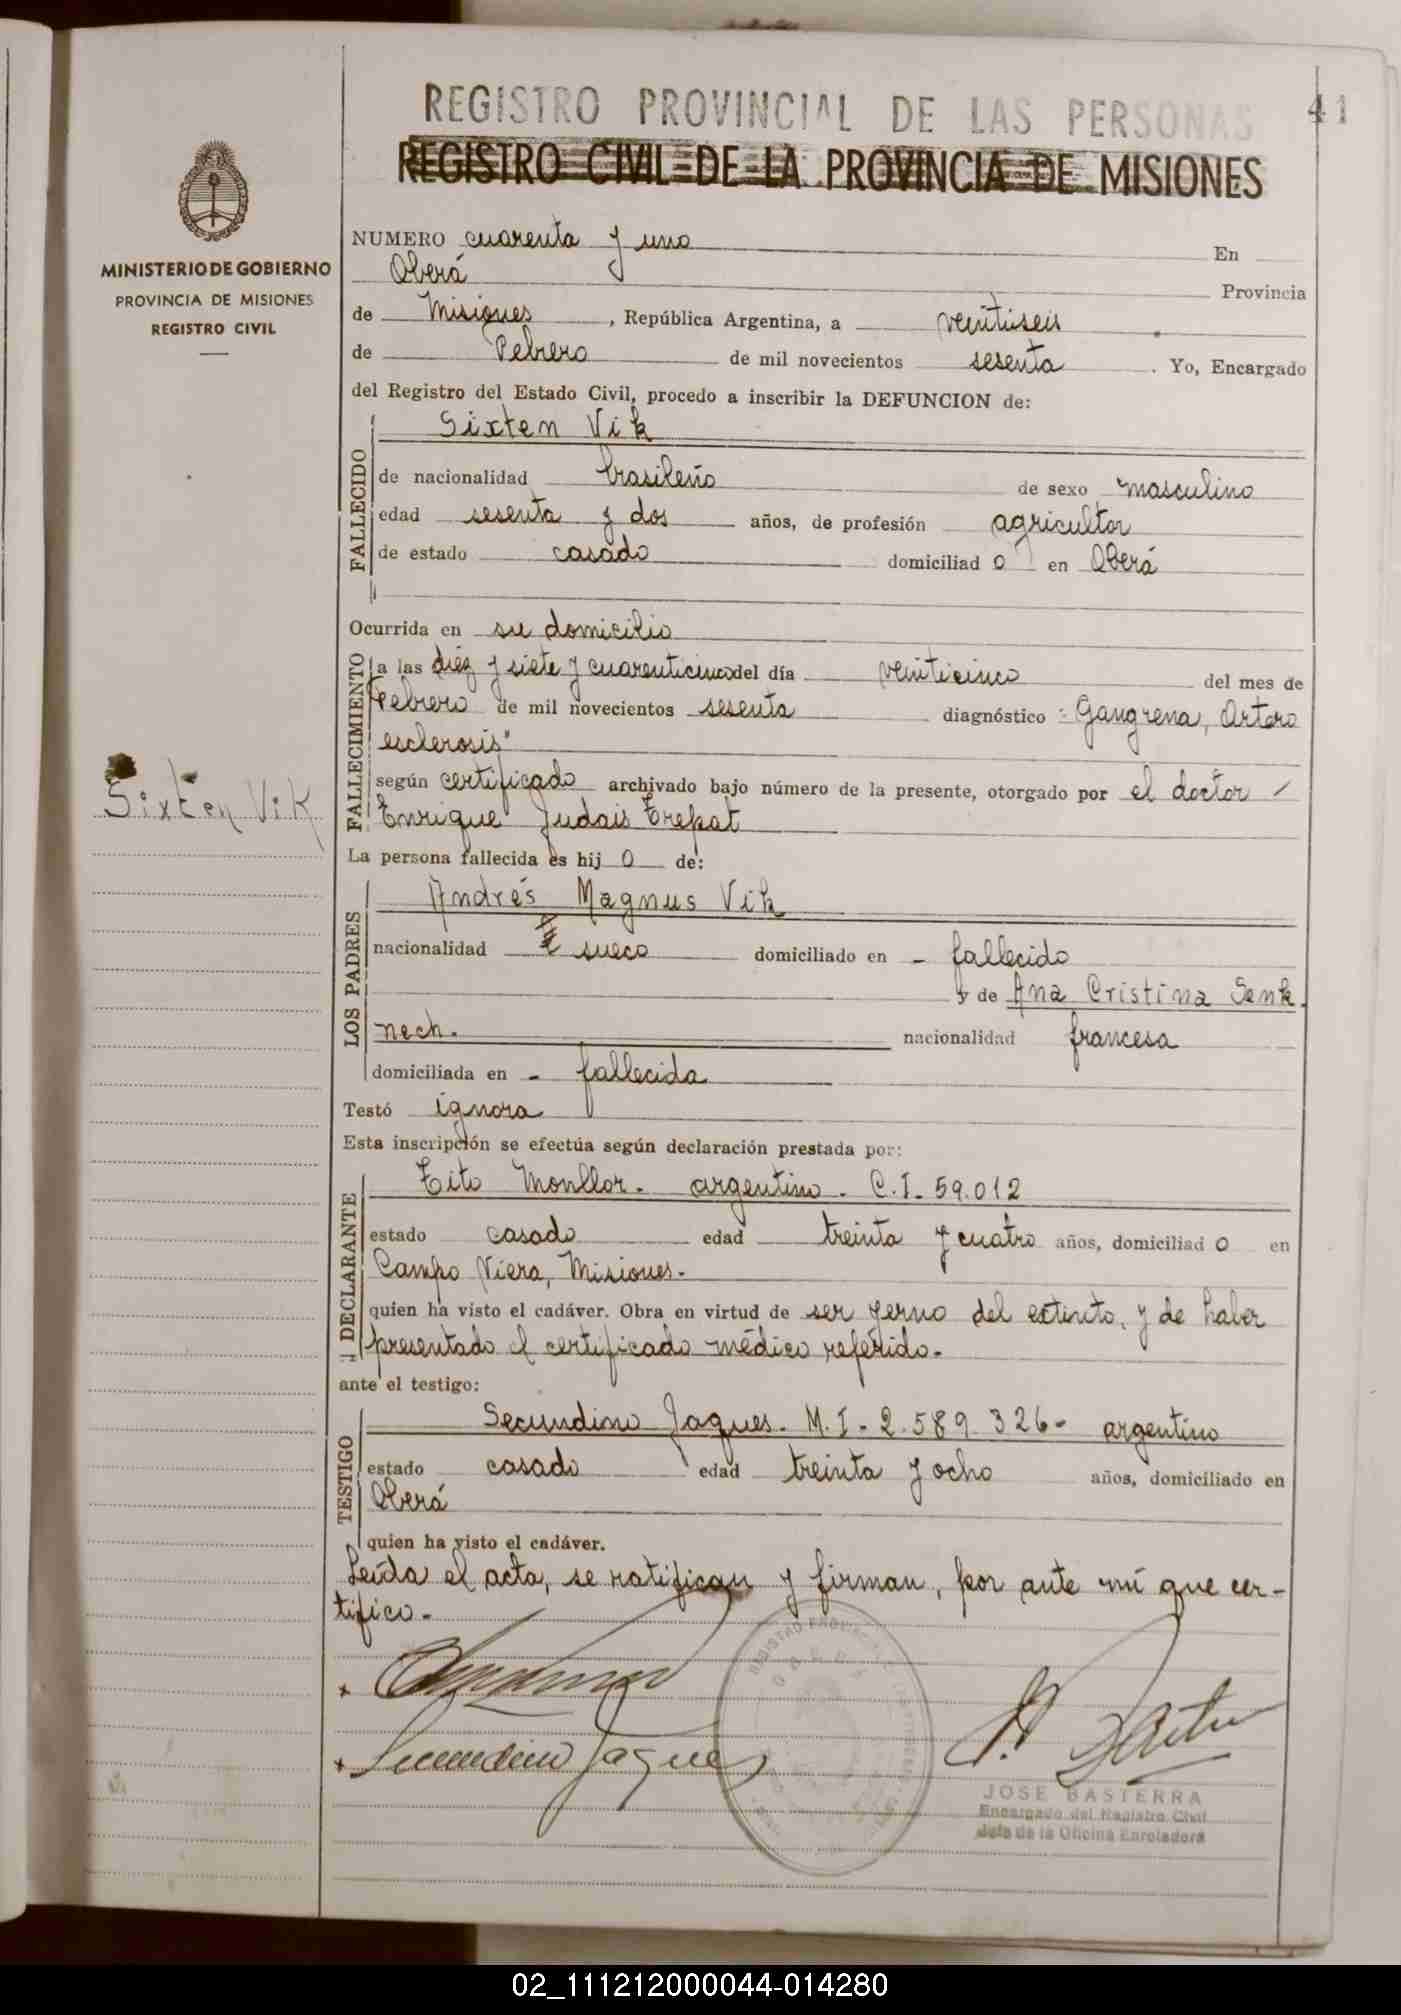 REGISTRO PROVINCIAL DE LAS PERSONAS
41
REGISTRO CIVIL DE LA PROVINCIA DE MISIONES
MINISTERIO DE GOBIERNO
PROVINCIA DE MISIONES
REGISTRO CIVIL
NUMERO cuarenta y uno En
Oberá Provincia
de Misiones, República Argentina, a veintiseis
de Febrero de mil novecientos sesenta. Yo, Encargado
del Registro del Estado Civil, procedo a inscribir la DEFUNCION de:
FALLECIDO
Sixten Vik
de nacionalidad brasileño de sexo masculino
edad sesenta y dos años, de profesión agricultor
de estado casado domiciliad o en Oberá
Ocurrida en su domicilio
FALLECIMIENTO
a las diez y siete y cuarenticinco del día veinticinco del mes de
Febrero de mil novecientos sesenta diagnóstico: Gangrena, Artero
esclerosis"
según certificado archivado bajo número de la presente, otorgado por el doctor
Enrique Judais Trepat
Sixten Vik
La persona fallecida es hij o de:
LOS PADRES
Andrés Magnus Vik
nacionalidad sueco domiciliado en - fallecido
y de Ana Cristina Senk-
nech. nacionalidad francesa
domiciliada en - fallecida
Testó ignora
Esta inscripción se efectúa según declaración prestada por:
DECLARANTE
Tito Monllor. argentino. C.I. 59.012
estado casado edad treinta y cuatro años, domiciliad o en
Campo Viera, Misiones.
quien ha visto el cadáver. Obra en virtud de ser yerno del extinto, y de haber
presentado el certificado médico referido.
ante el testigo:
TESTIGO
Secundino Jaques. M.I. 2.589.326- argentino
estado casado edad treinta y ocho años, domiciliado en
Oberá
quien ha visto el cadáver.
Leída el acta, se ratifican y firman, por ante mí que cer-
tifico.
Secundino Jaques
JOSE BASTERRA
Encargado del Registro Civil
Jefe de la Oficina Enroladora
02_111212000044-014280